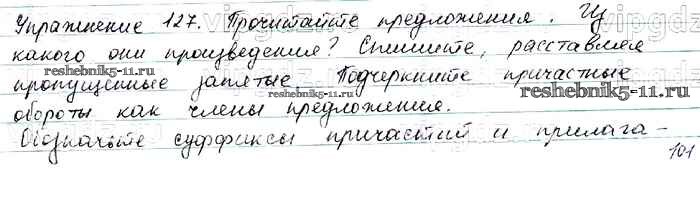 Упражнение 127. Прочитайте предложения. Из
какого они произведения? Спишите, расставляя
пропущенные запятые. Подчеркните причастные
reshebnik5-11.ru
reshebnik5-11.ru
обороты как члены предложения.
Обозначьте суффиксы причастий и прилага-
101